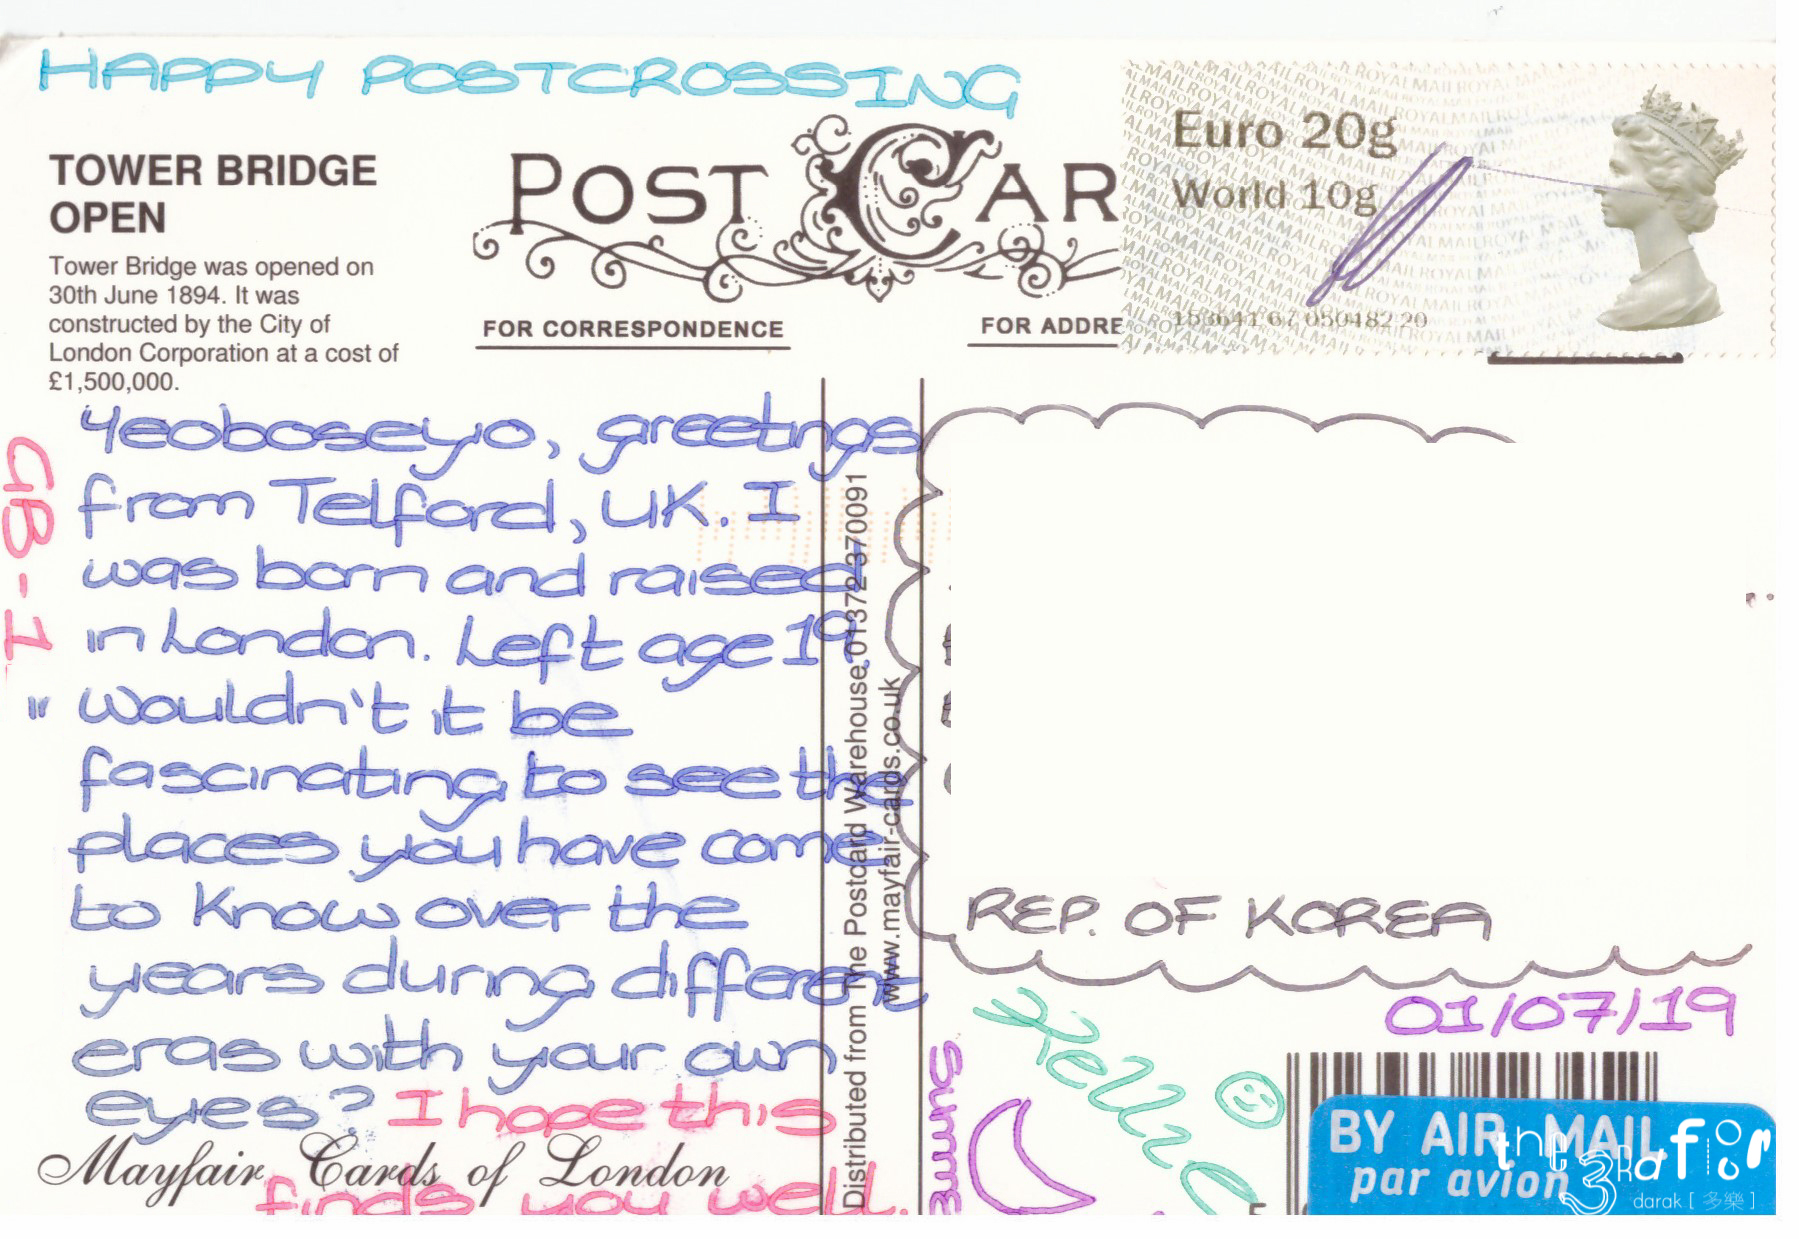 HAPPY POSTCROSSING
TOWER BRIDGE
OPEN
Tower Bridge was opened on
30th June 1894. It was
constructed by the City of
London Corporation at a cost of
£1,500,000.
POST CAR
FOR CORRESPONDENCE
FOR ADDRE
Euro 20g
World 10g
GB-1
Yeoboseyo, greetings
from Telford, UK. I
was born and raised
in London. Left age 19.
"Wouldn't it be
fascinating to see the
places you have come
to know over the
years during different
eras with your own
eyes? I hope this
finds you well.
Mayfair Cards of London
Distributed from The Postcard Warehouse 01372 370091
www.mayfair-cards.co.uk
REP. OF KOREA
01/07/19
Kellie
BY AIR MAIL
par avion
the 3rd floor
darak [ 多樂 ]